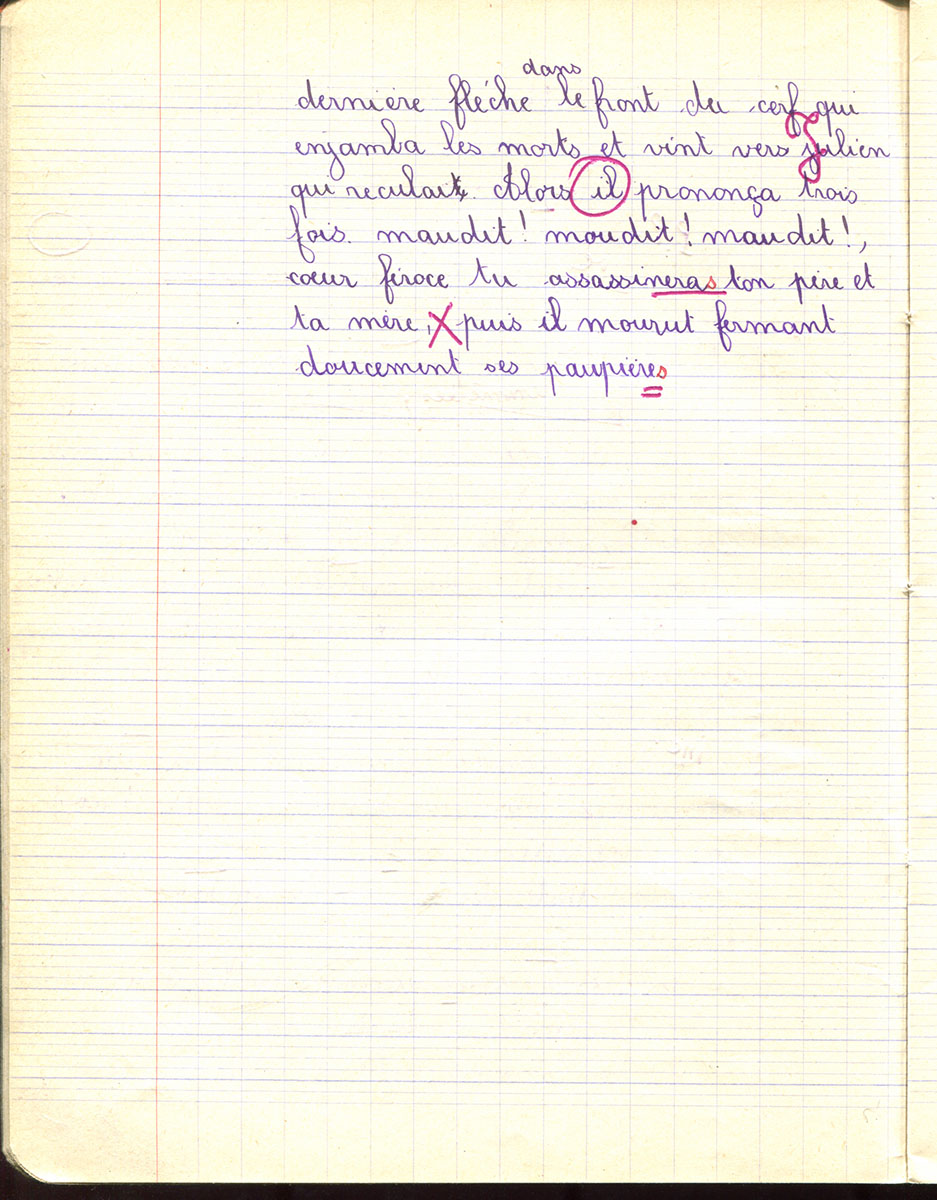 dans
dernière flèche le front du cerf qui
enjamba les morts et vint vers Julien
qui reculait. Alors il prononça trois
fois. maudit! moudit! maudit!,
cœur féroce tu assassineras ton père et
ta mère, puis il mourut fermant
doucement ses paupières